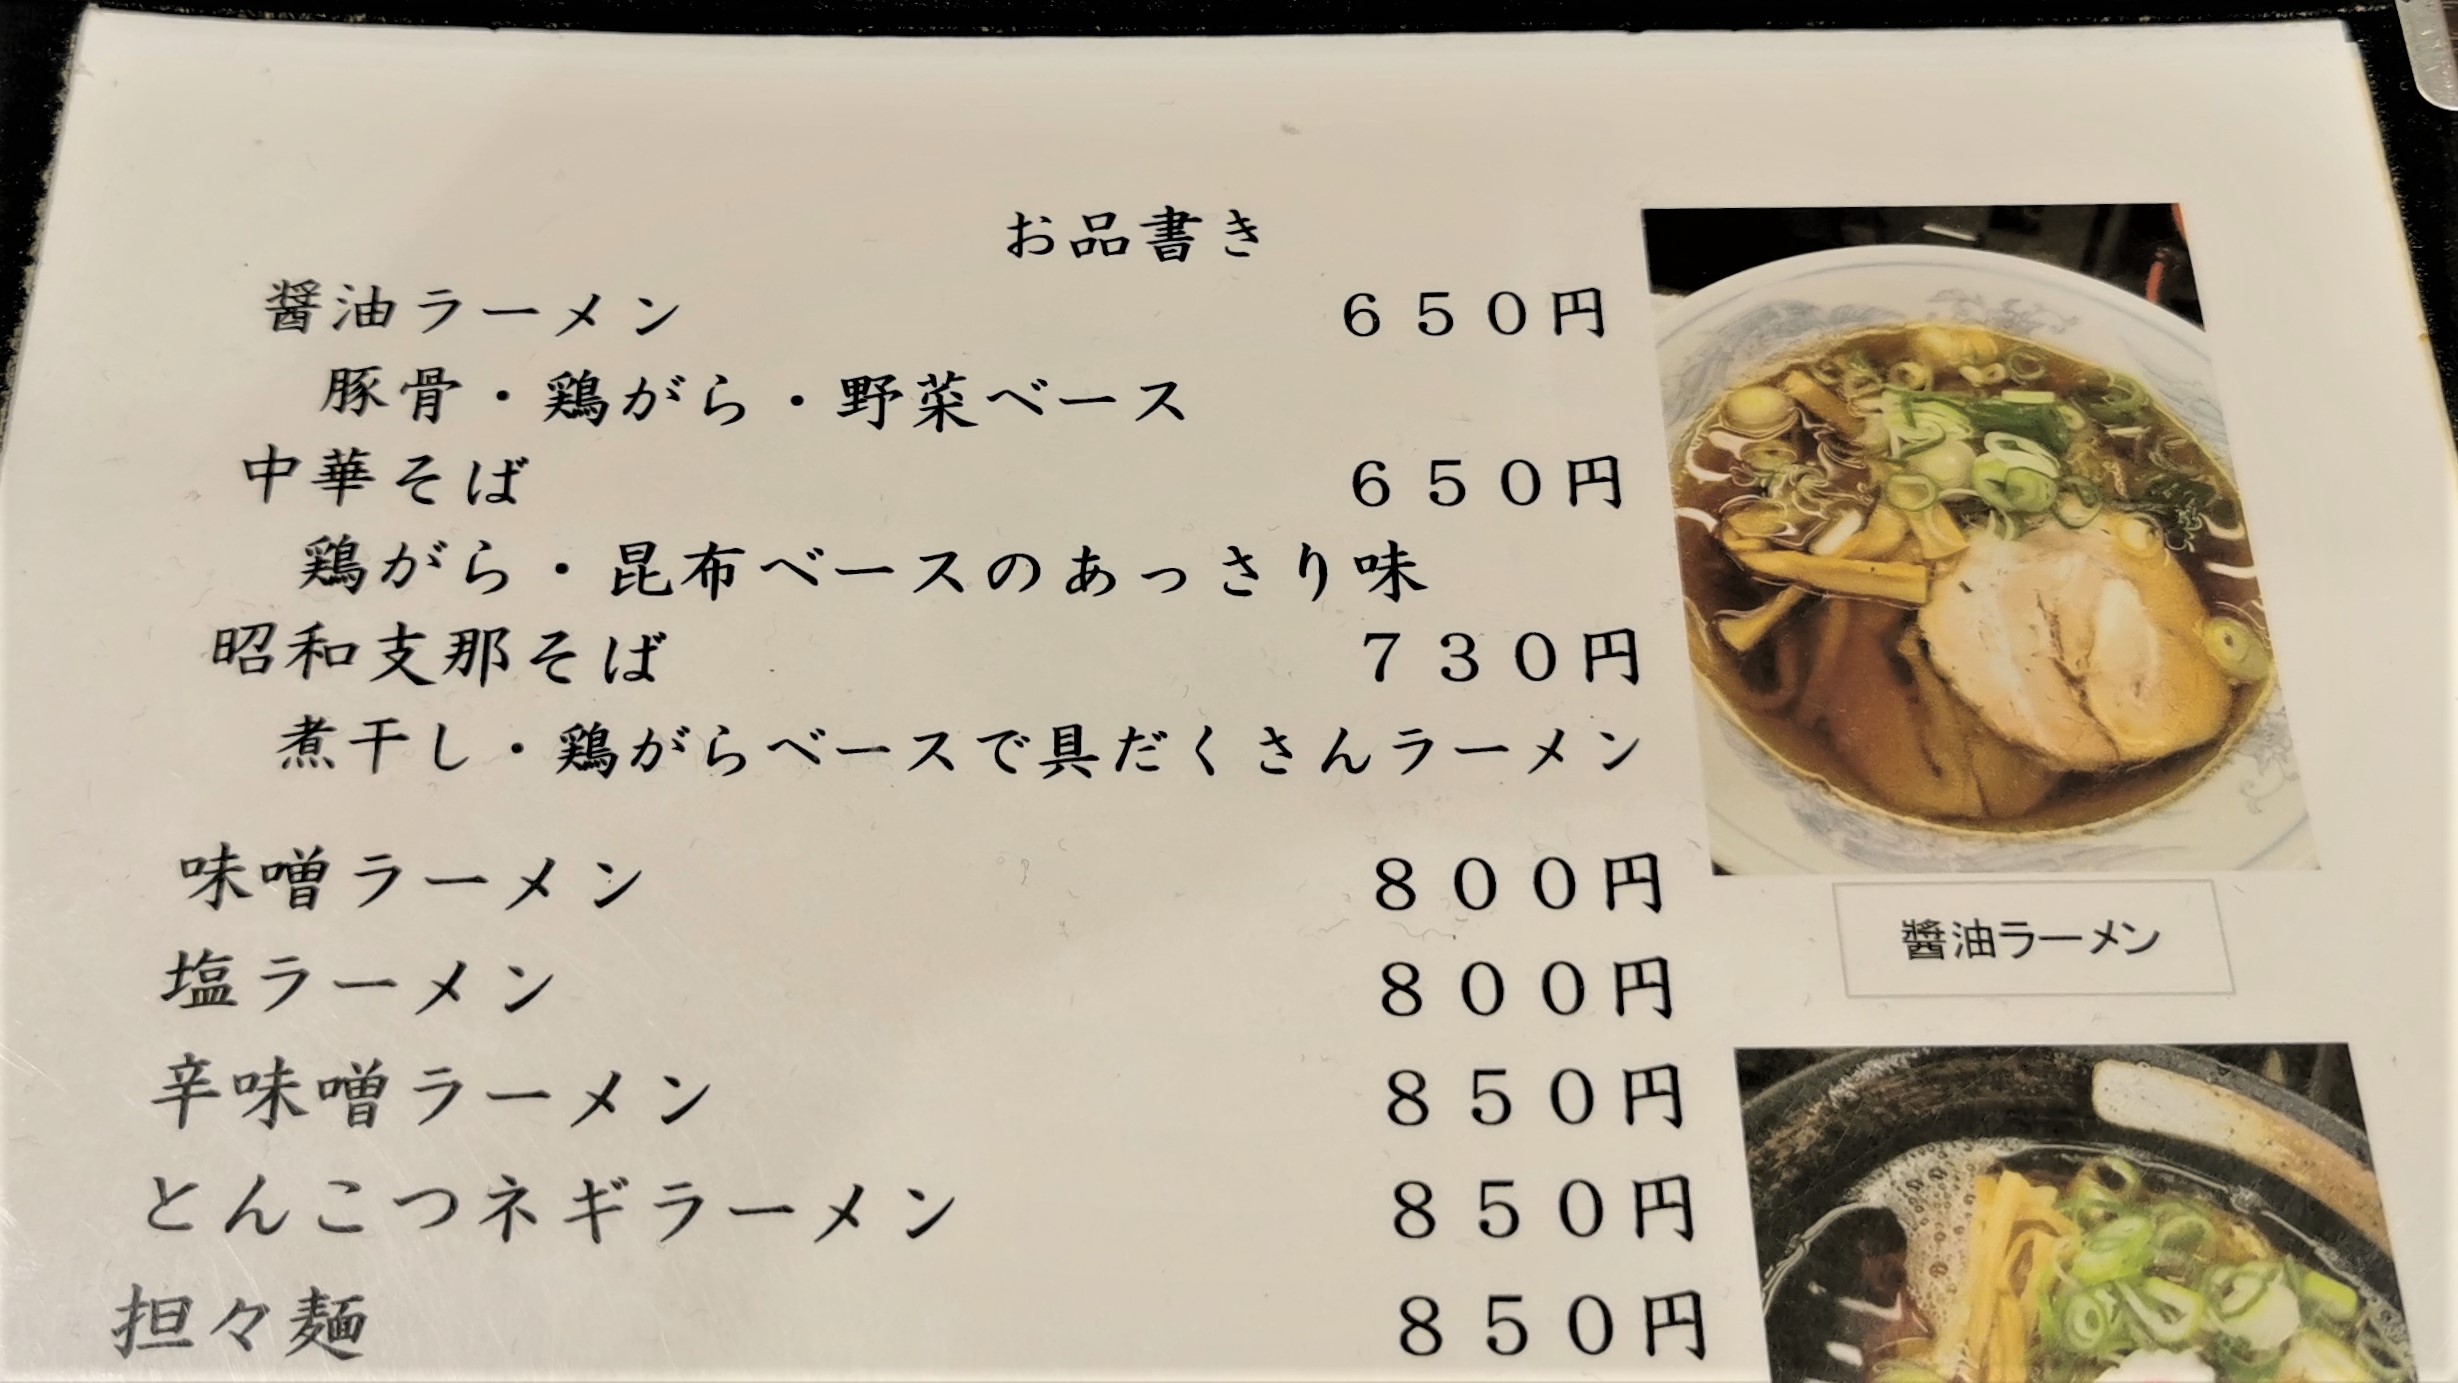 お品書き
醤油ラーメン　６５０円
豚骨・鶏がら・野菜ベース
中華そば　６５０円
鶏がら・昆布ベースのあっさり味
昭和支那そば　７３０円
煮干し・鶏がらベースで具だくさんラーメン
味噌ラーメン　８００円
塩ラーメン　８００円
辛味噌ラーメン　８５０円
とんこつネギラーメン　８５０円
担々麺　８５０円
醤油ラーメン